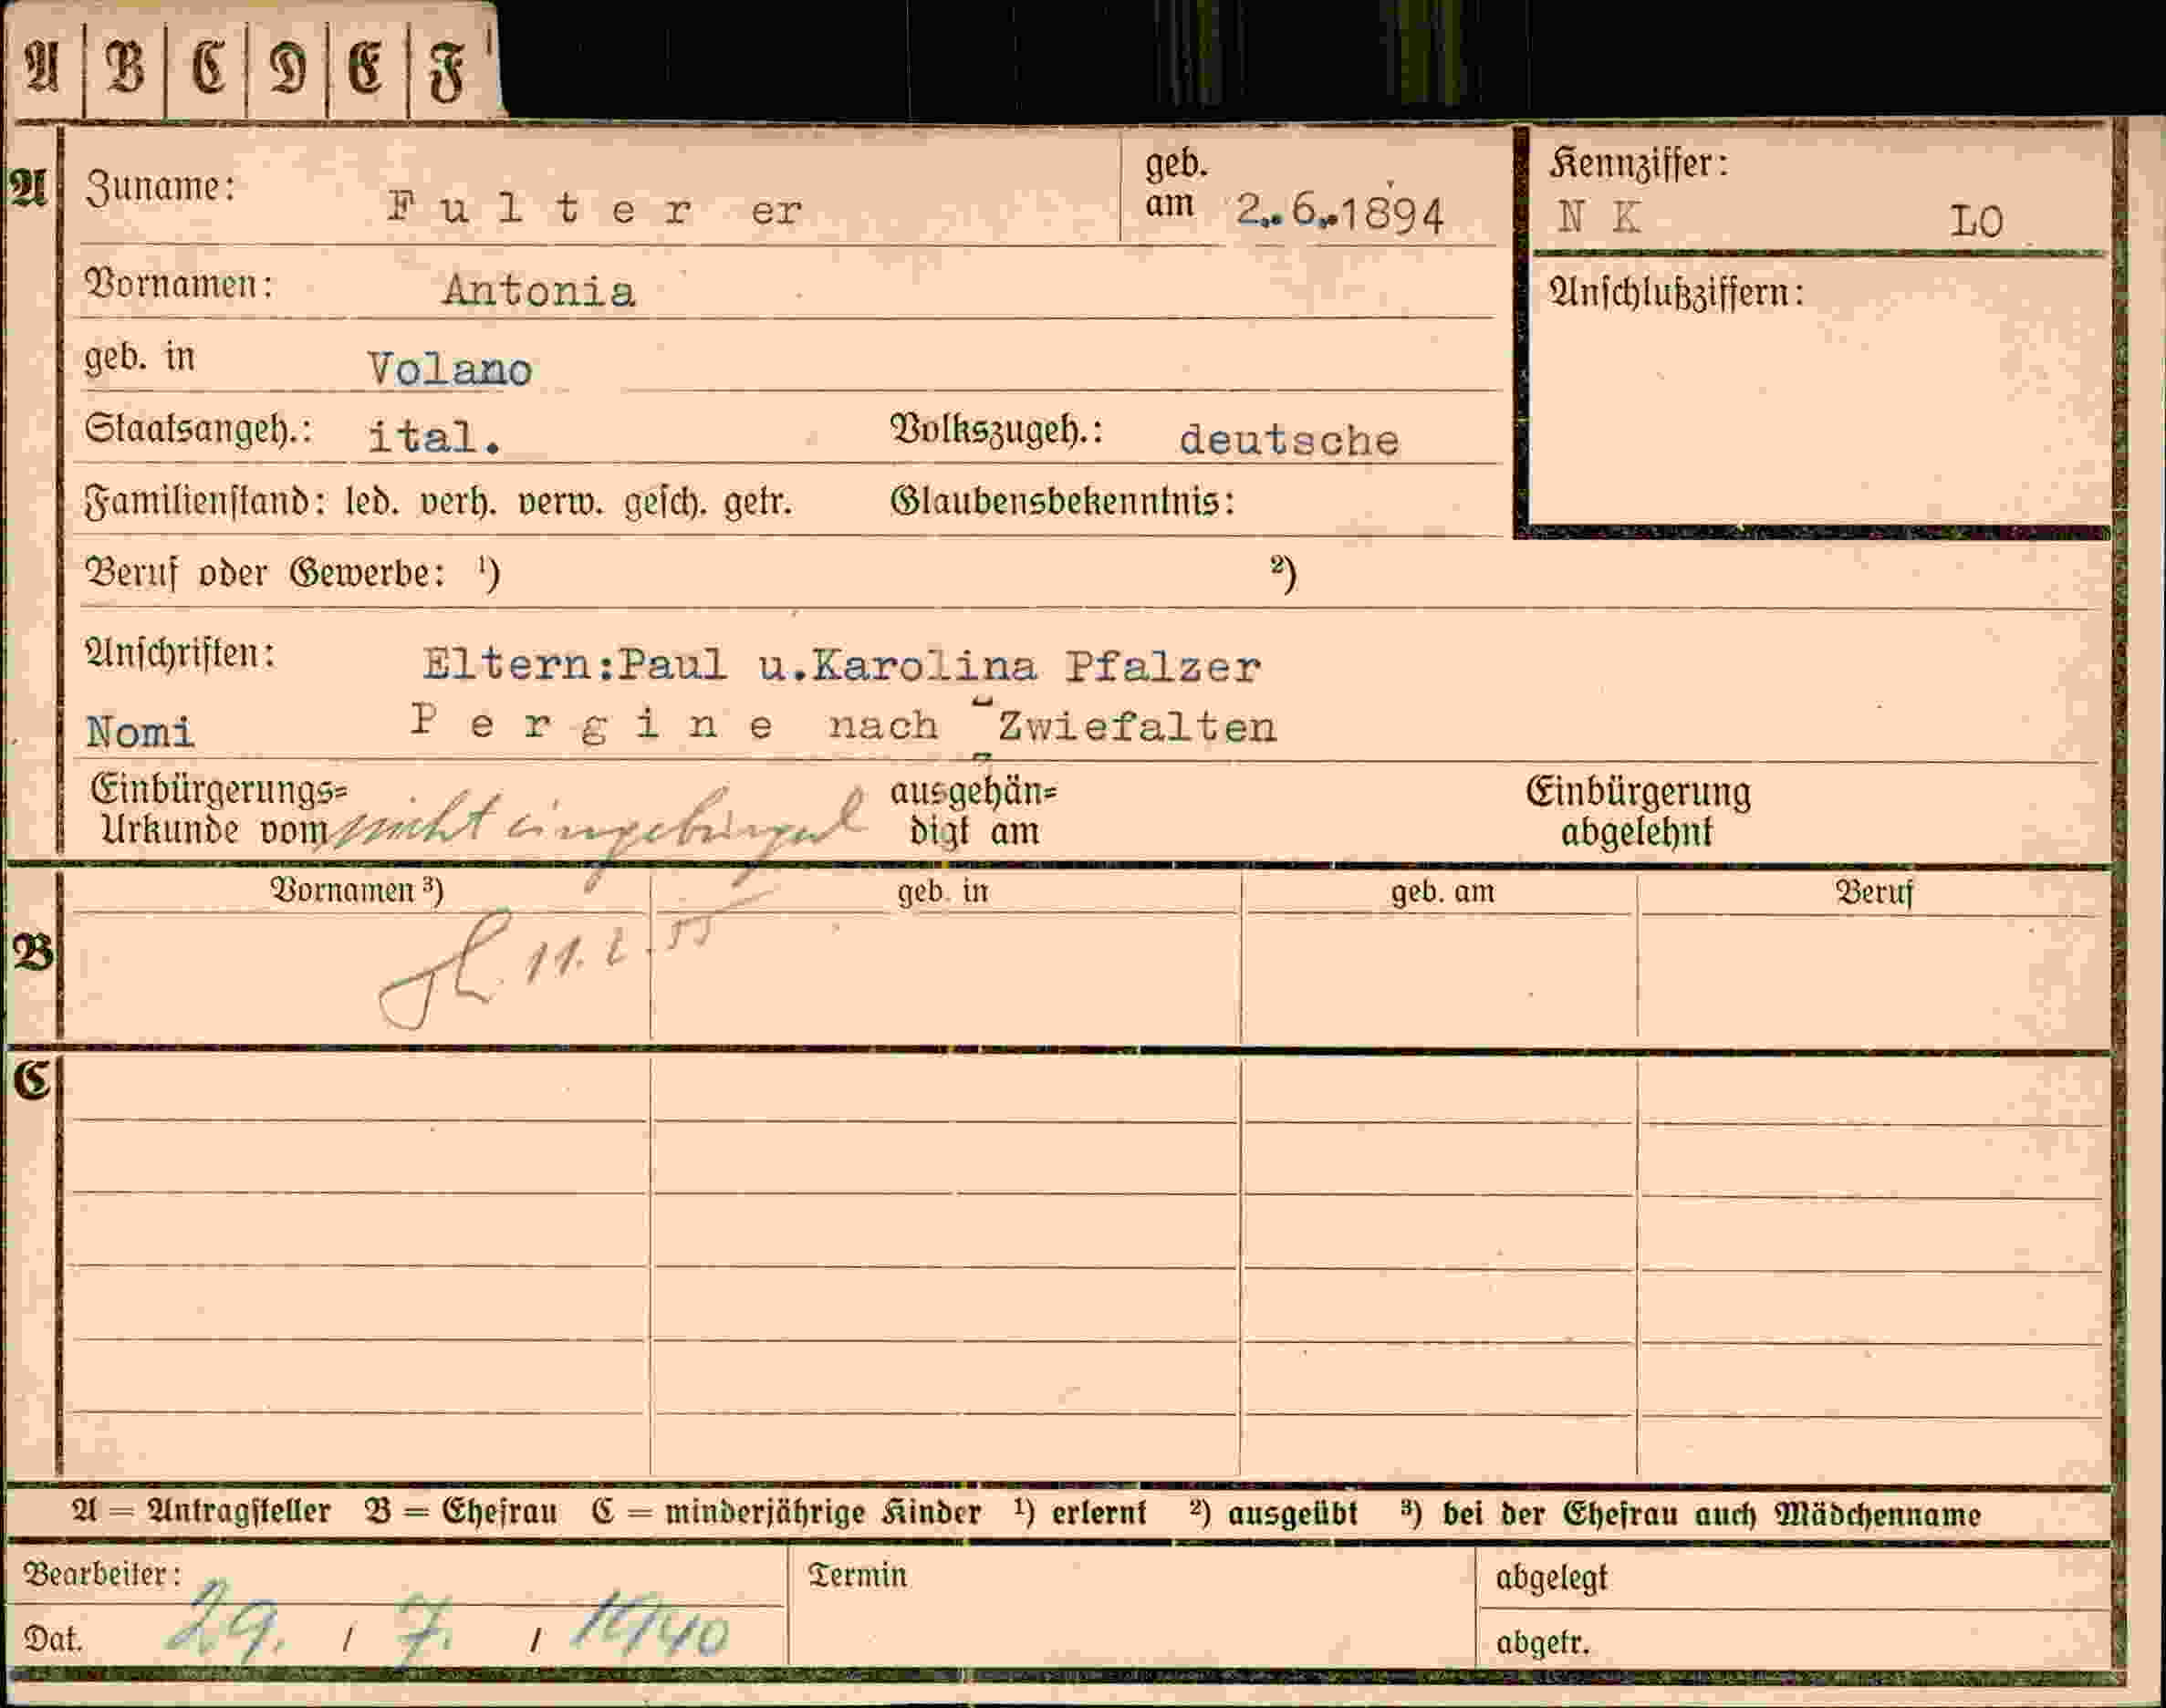 A B C D E F
A Zuname: F u l t e r er geb. am 2. 6. 1894 Kennziffer: N K LO
Vornamen: Antonia Anschlußziffern:
geb. in Volano
Staatsangeh.: ital. Volkszugeh.: deutsche
Familienstand: led. verh. verw. gesch. getr. Glaubensbekenntnis:
Beruf oder Gewerbe: ¹) ²)
Anschriften: Eltern:Paul u.Karolina Pfalzer
Nomi P e r g i n e nach Zwiefalten
Einbürgerungs= Urkunde vom nicht eingebürgert ausgehän= digt am Einbürgerung abgelehnt
B Vornamen ³) geb. in geb. am Beruf
11. 2. 55
C
A = Antragsteller B = Ehefrau C = minderjährige Kinder ¹) erlernt ²) ausgeübt ³) bei der Ehefrau auch Mädchenname
Bearbeiter: Termin abgelegt
Dat. 29. / 7. / 1940 abgetr.